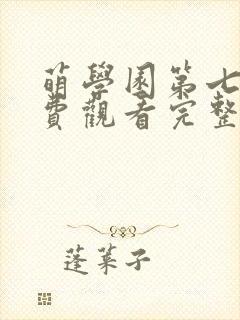 萌學園第七
費觀看完整
蓬萊子